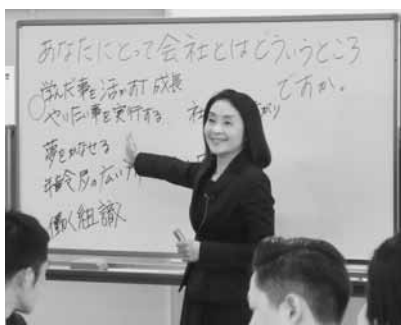 あなたにとって会社とはどういうところ
ですか。
学んだ事を活かす 成長
やりたい事を実行する 社
夢をかなせる
年令尺の広い
働く組識